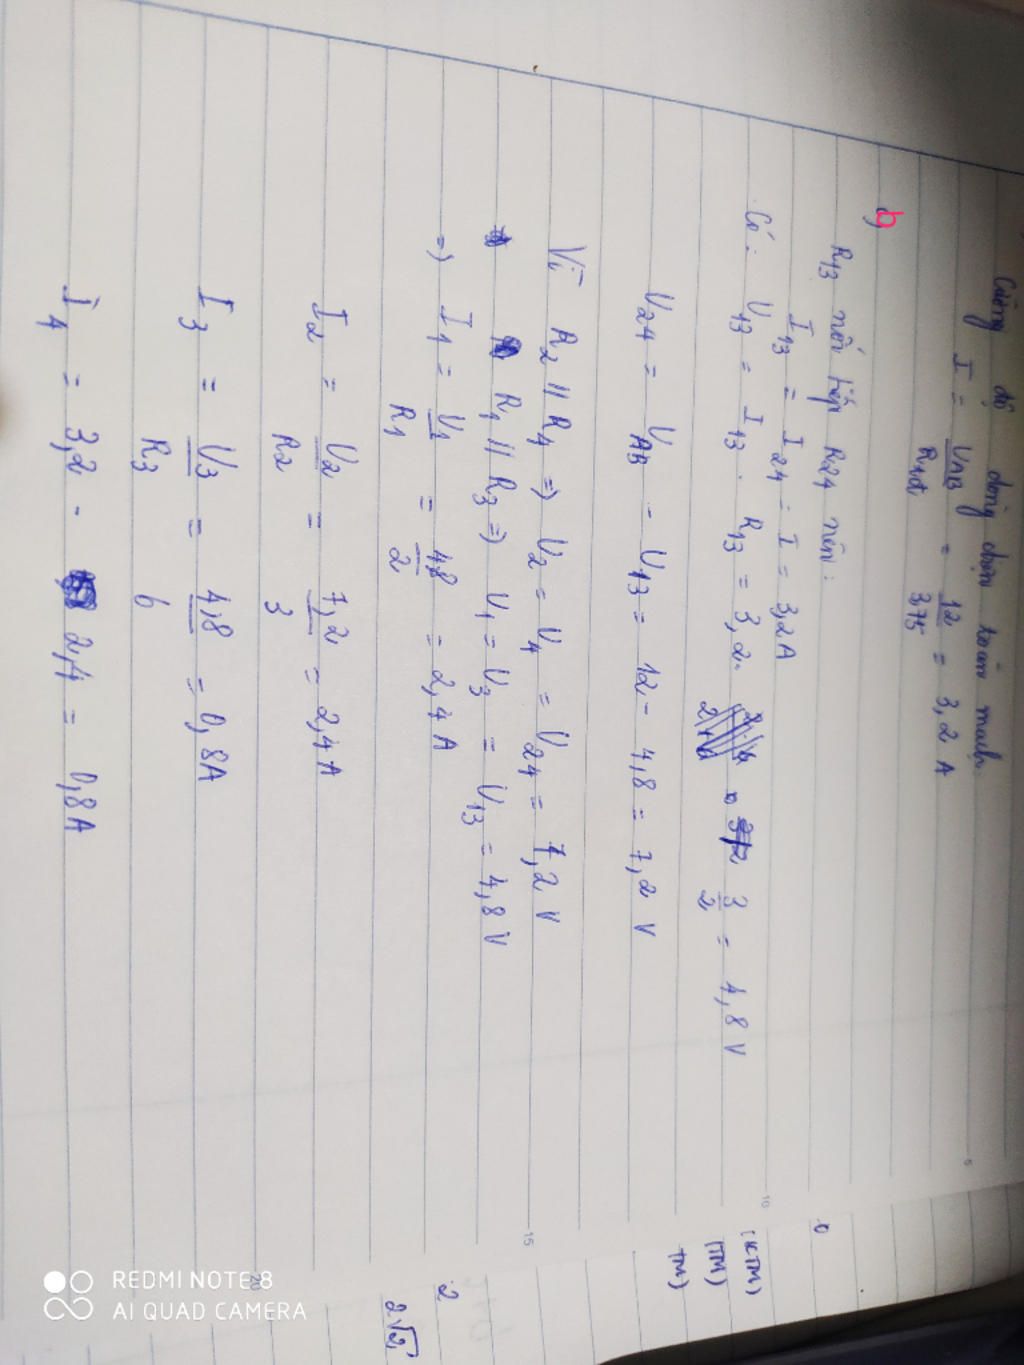 Cường độ dòng điện toàn mạch:
I = UAB / Rtđ = 12 / 3,75 = 3,2 A
b)
R13 nối tiếp R24 nên:
I13 = I24 = I = 3,2A
Có: U13 = I13 . R13 = 3,2 . 3/2 = 4,8 V
U24 = UAB - U13 = 12 - 4,8 = 7,2 V
Vì R2 // R4 => U2 = U4 = U24 = 7,2 V
R1 // R3 => U1 = U3 = U13 = 4,8 V
=> I1 = U1 / R1 = 4,8 / 2 = 2,4 A
I2 = U2 / R2 = 7,2 / 3 = 2,4 A
I3 = U3 / R3 = 4,8 / 6 = 0,8A
I4 = 3,2 - 2,4 = 0,8A
(KTM)
(TM)
TM)
2
2√2
5
10
15
20
REDMI NOTE 8
AI QUAD CAMERA